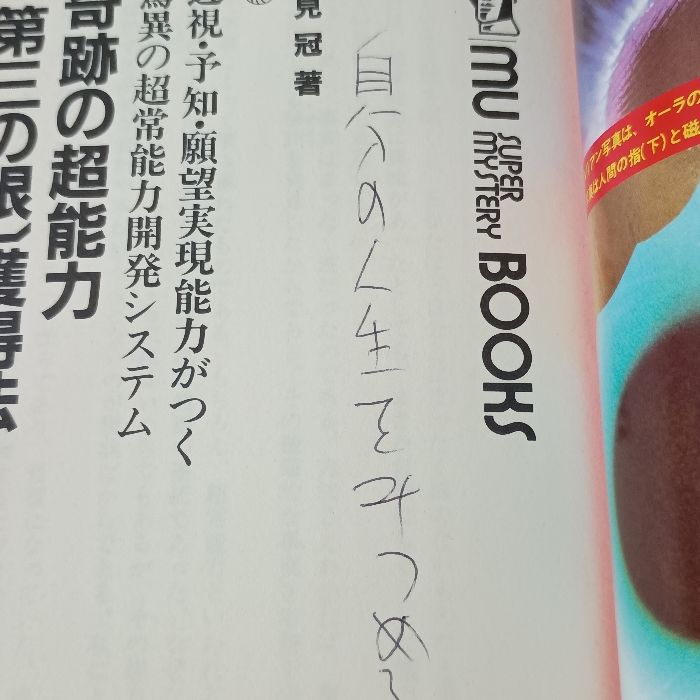 アン写真は、オーラの
は人間の指(下)と磁
MU
SUPER
MYSTERY
BOOKS
自分の人生をみつめ
見冠著
透視・予知・願望実現能力がつく
驚異の超常能力開発システム
奇跡の超能力
第三の眼〉獲得法